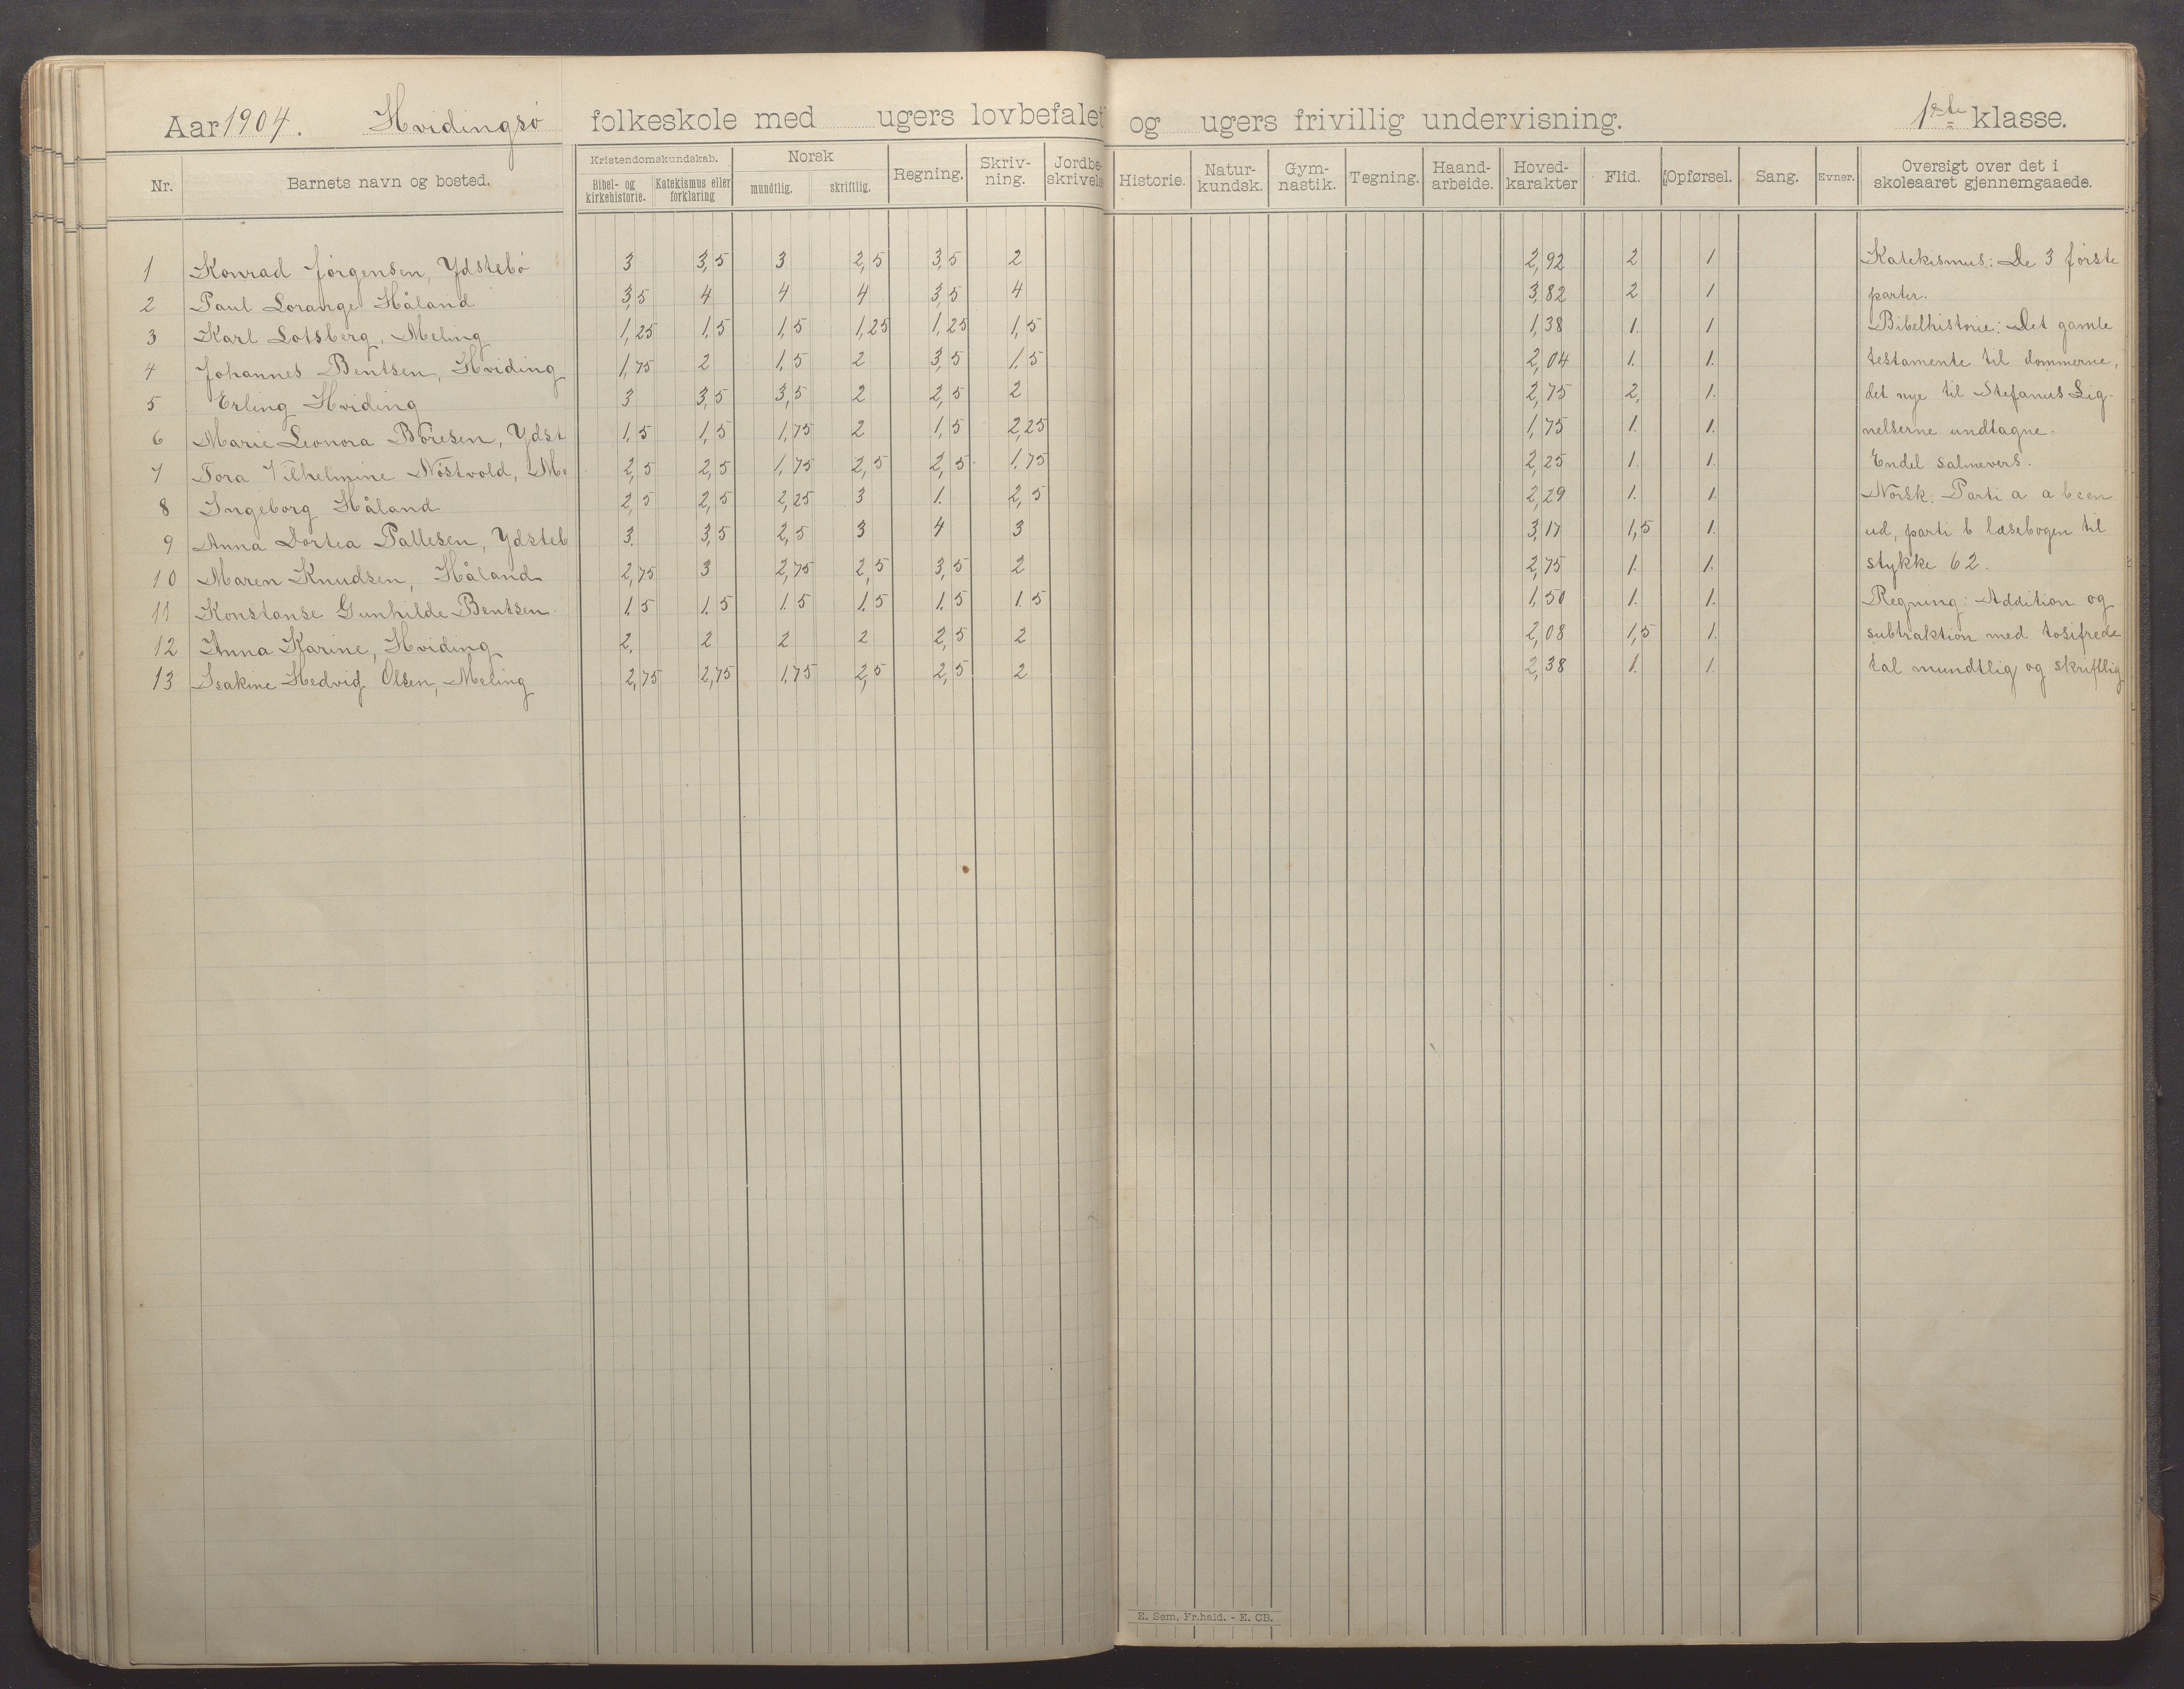 Aar 1904. Hvidingsö folkeskole med ugers lovbefalet og ugers frivillig undervisning. 1ste klasse.
Nr. Barnets navn og bosted. Kristendomskundskab. Bibel- og kirkehistorie. Katekismus eller forklaring Norsk mundtlig. skriftlig. Regning. Skriv-ning. Jordbe-skrivels Historie. Natur-kundsk. Gym-nastik. Tegning. Haand-arbeide. Hoved-karakter Flid. Opførsel. Sang. Evner. Oversigt over det i skoleaaret gjennemgaaede.
1 Konrad Jørgensen, Ydstebö 3 3,5 3 2,5 3,5 2 2,92 2 1 Katekismus: De 3 første
2 Paul Lorange Håland 3,5 4 4 4 3,5 4 3,82 2 1 parter.
3 Karl Lotsberg, Meling 1,25 1,5 1,5 1,25 1,25 1,5 1,38 1. 1 Bibelhistorie: Det gamle
4 Johannes Bentsen, Hviding 1,75 2 1,5 2 3,5 1,5 2,04 1. 1. testamente til dommerne,
5 Erling Hviding 3 3,5 3,5 2 2,5 2 2,75 2, 1. det nye til Stefanus Lig-
6 Marie Leonora Böresen, Ydst 1,5 1,5 1,75 2 1,5 2,25 1,75 1. 1. nelserne undtagne.
7 Tora Vilhelmine Nöstvold, Me 2,5 2,5 1,75 2,5 2,5 1,75 2,25 1. 1. Endel salmevers.
8 Ingeborg Håland 2,5 2,5 2,25 3 1. 2,5 2,29 1. 1. Norsk: Parti a abcen
9 Anna Dortea Pallesen, Ydsteb 3. 3,5 2,5 3 4 3 3,17 1,5 1. ud, parti b læsebogen til
10 Maren Knudsen, Håland 2,75 3 2,75 2,5 3,5 2 2,75 1. 1. stykke 62.
11 Konstanse Gunhilde Bentsen. 1,5 1,5 1,5 1,5 1,5 1,5 1,50 1. 1. Regning: Addition og
12 Anna Karine, Hviding 2, 2 2 2 2,5 2 2,08 1,5 1. subtraktion med tosifrede
13 Isakine Hedvig Olsen, Meling 2,75 2,75 1,75 2,5 2,5 2 2,38 1. 1. tal mundtlig og skriftlig
E. Sem, Fr.hald. - E. CB.